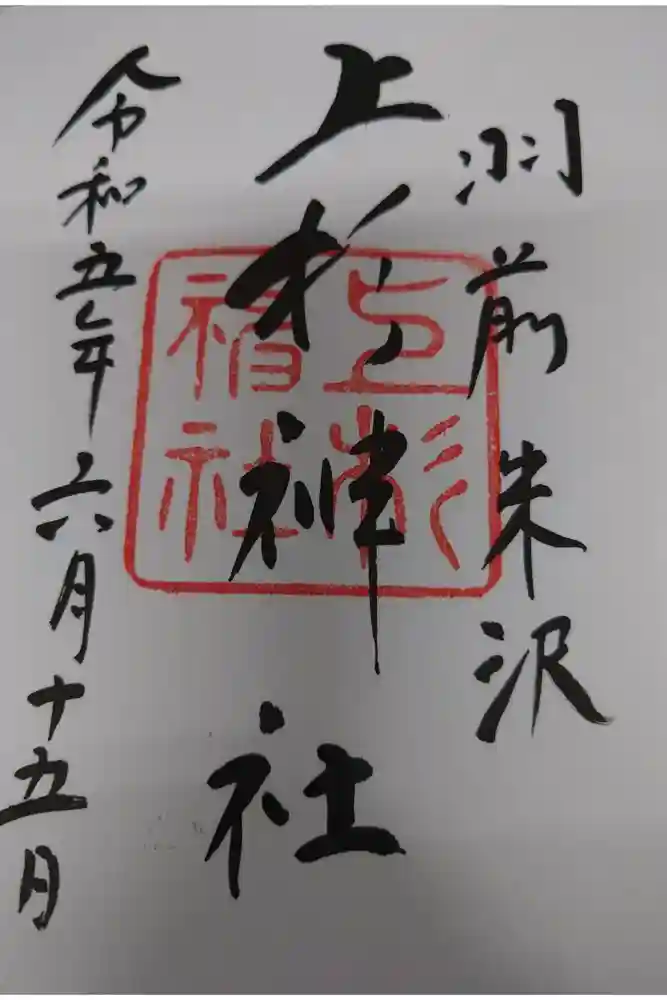 羽前 米沢
上杉神社
令和五年六月十五日
上杉
神社